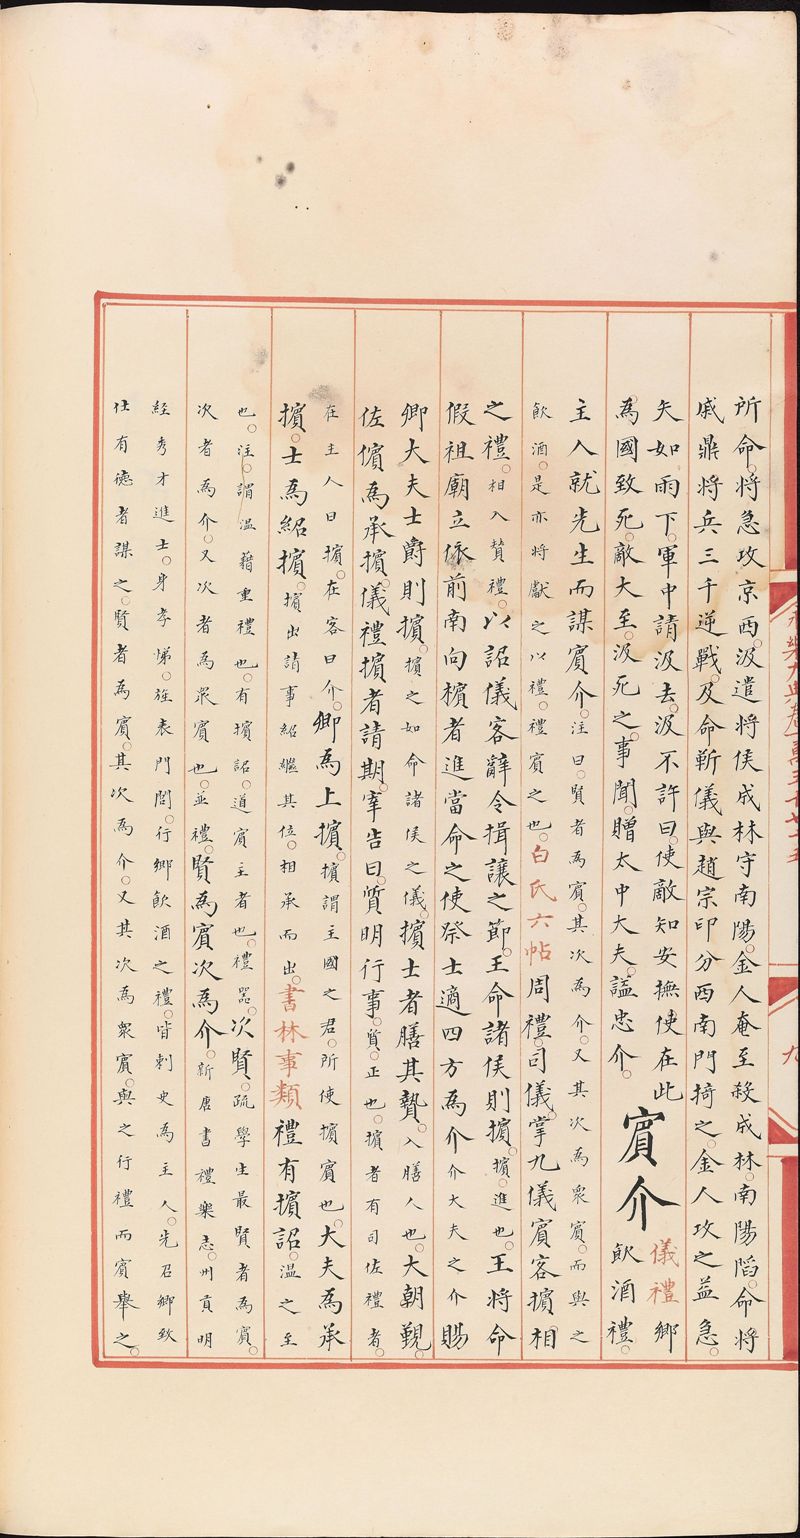 所命。將急攻京西。汲遣將侯成林守南陽。金人奄至。殺成林。南陽陷。命將
戚鼎將兵三千逆戰。及命靳儀與趙宗印分西南門掎之。金人攻之益急。
矢如雨下。軍中請汲去。汲不許曰。使敵知安撫使在此
為國致死。敵大至。汲死之。事聞。贈太中大夫。謚忠介。
賓介
儀禮鄉
飲酒禮。
主人就先生而謀賓介。注曰。賢者為賓。其次為介。又其次為眾賓。而與之
飲酒。是亦將獻之以禮。禮賓之也。白氏六帖周禮。司儀。掌九儀賓客擯相
之禮。相入贊禮。以詔儀容辭令揖讓之節。王命諸侯則擯。擯。進也。王將命
假祖廟立依前南向擯者進當命之使祭士適四方為介介大夫之介賜
卿大夫士爵則擯。擯之如命諸侯之儀。擯士者膳其贄。入膳人也。大朝覲。
佐儐為承擯。儀禮擯者請期。宰告曰。質明行事。質。正也。擯者有司佐禮者。
在主人曰擯。在客曰介。卿為上擯。擯謂主國之君。所使擯賓也。大夫為承
擯。士為紹擯。擯出請事紹繼其位。相承而出。書林事類禮有擯詔。溫之至
也。注。謂溫藉重禮也。有擯詔。道賓主者也。禮器。次賢。疏學生最賢者為賓。
次者為介。又次者為眾賓也。並禮。賢為賓次為介。新唐書禮樂志。州貢明
經秀才進士。身孝悌。旌表門閭。行鄉飲酒之禮。皆刺史為主人。先召鄉致
仕有德者謀之。賢者為賓。其次為介。又其次為眾賓。與之行禮而賓舉之。
永樂大典卷一萬五千七十五
九